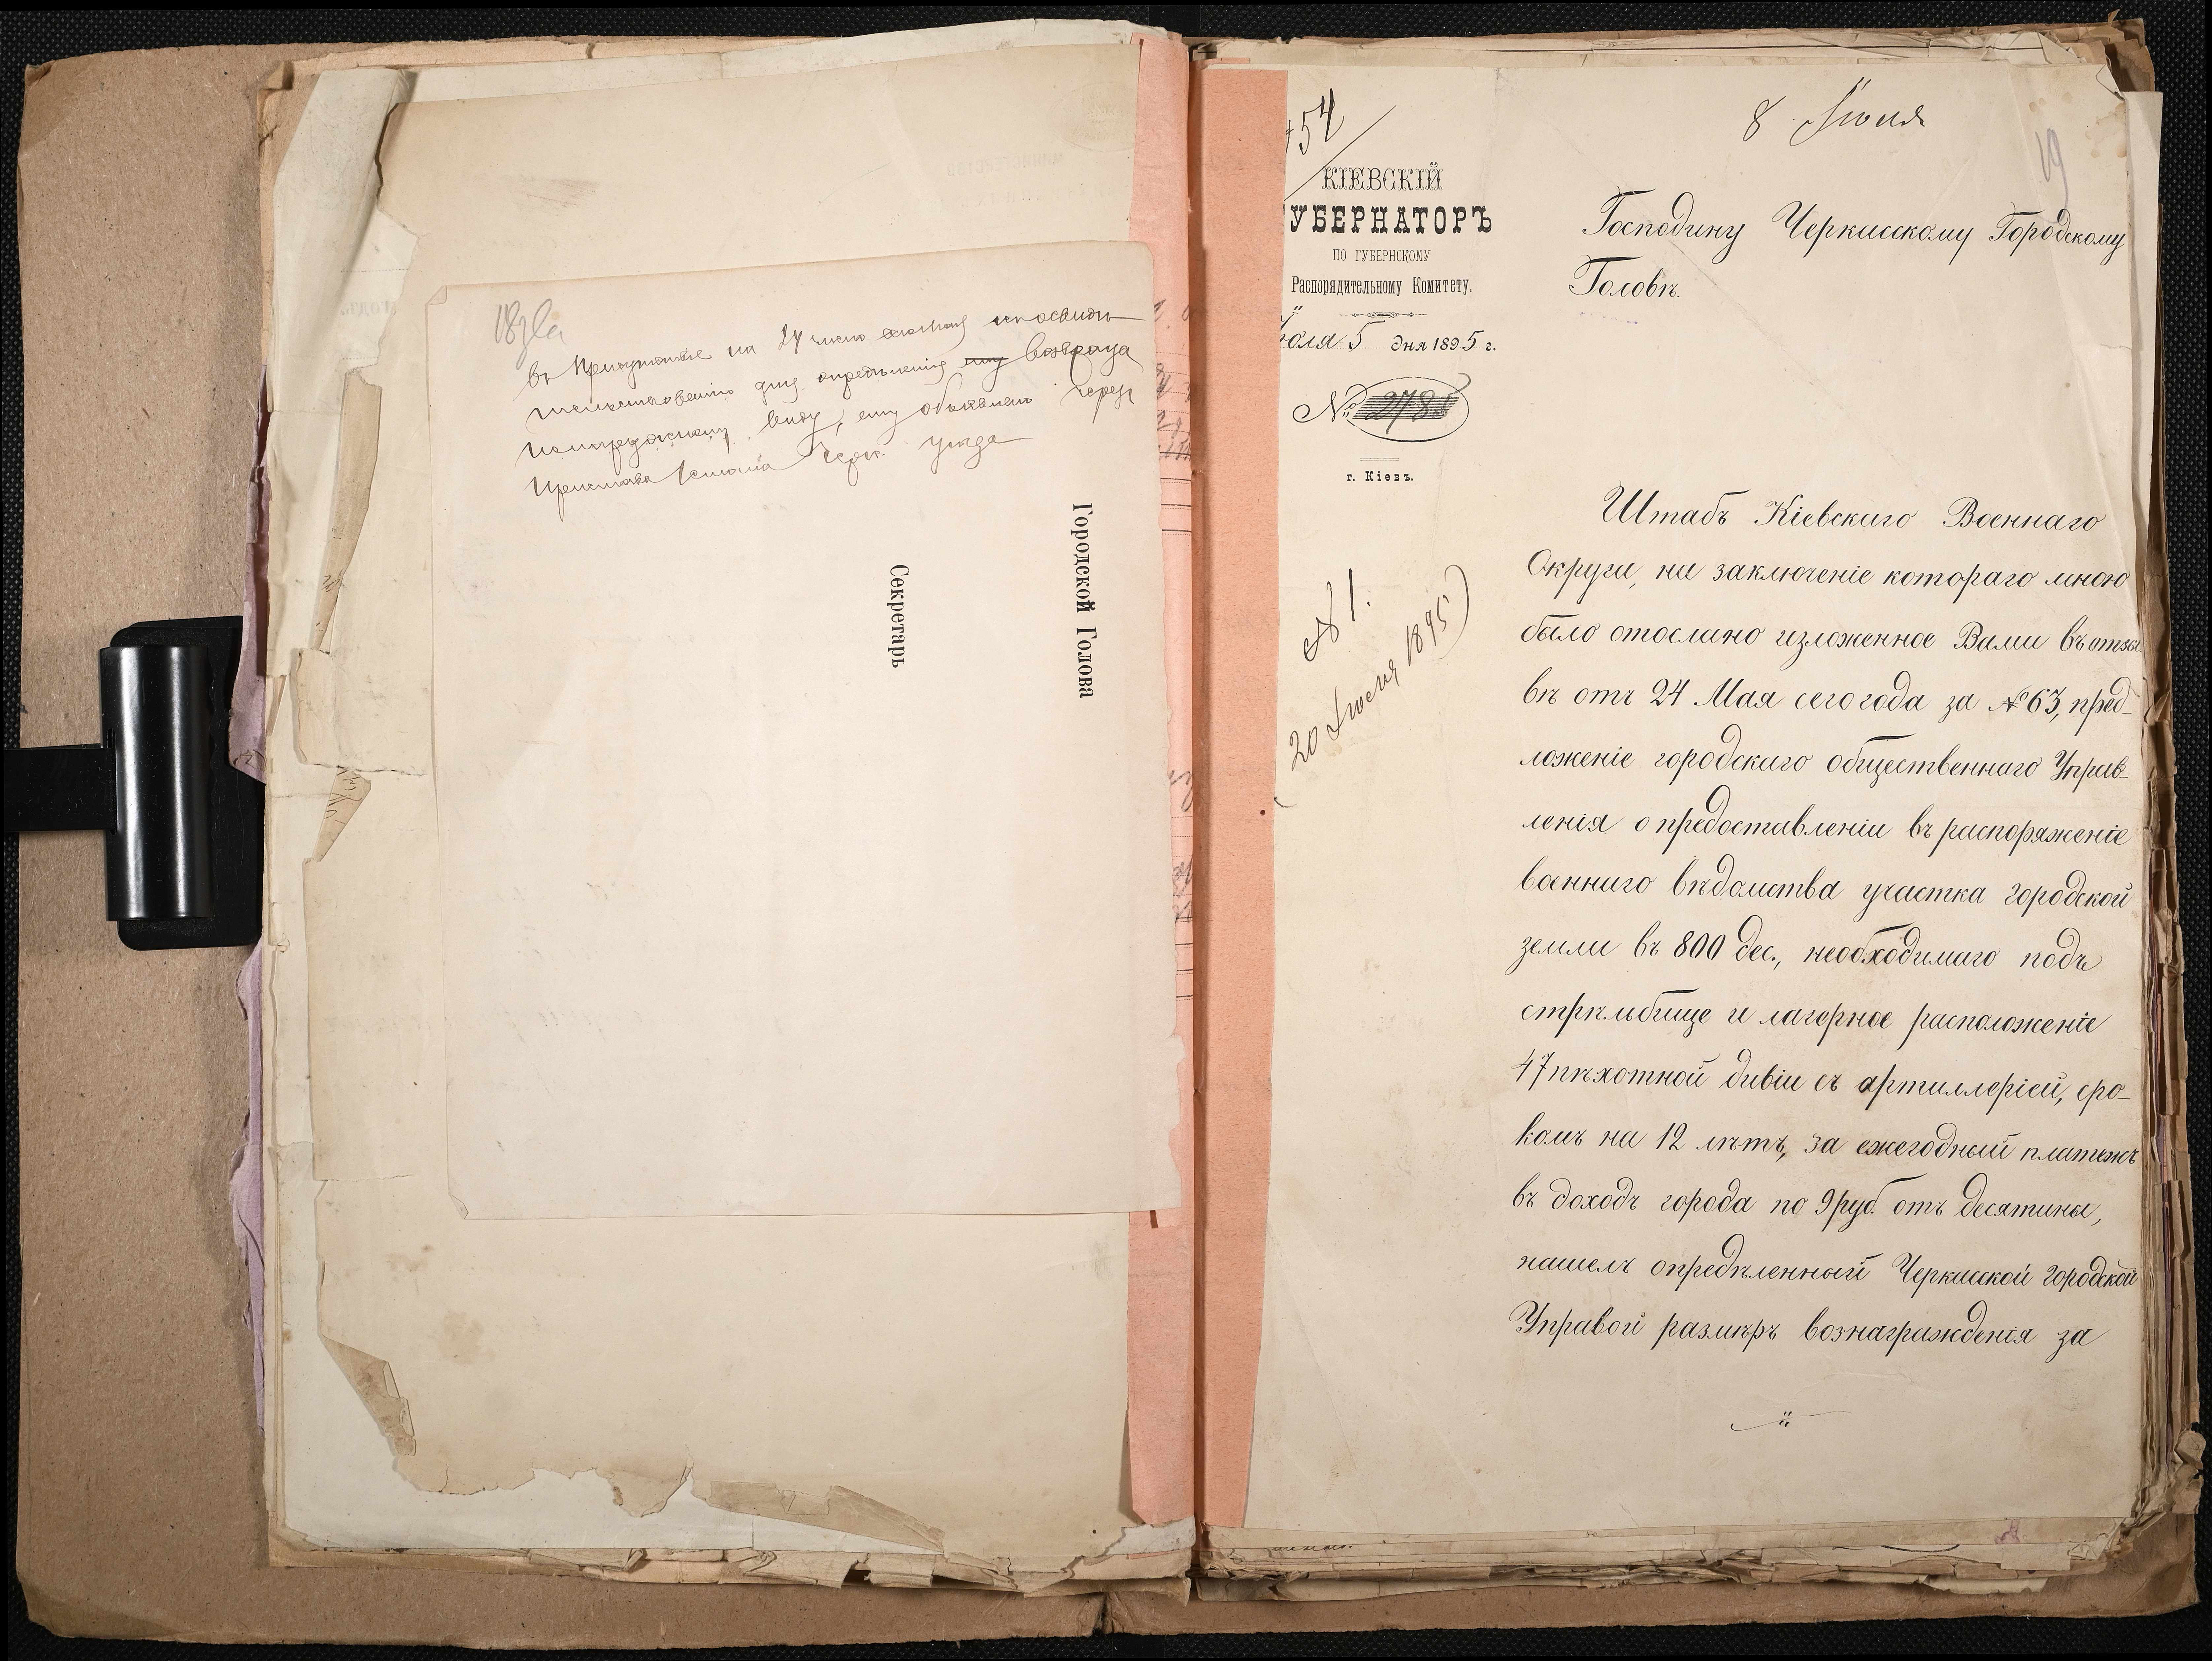 18 зла
въ Присутствіе на 24 число
опредѣленія возвра
виду, ему объявлено чрез
Пристава 1 стана Черк. уѣзда
Городской Голова
Секретарь
54
8 Іюля
19
КІЕВСКІЙ
УБЕРНАТОРЪ
ПО ГУБЕРНСКОМУ
Распорядительному Комитету.
юля 5 дня 1895 г.
№ 2785
г. Кіевъ.
Господину Черкасскому Городскому
Головѣ.
№ 1.
(20 Іюля 1895)
Штабъ Кіевскаго Военнаго
Округа, на заключеніе котораго мною
было отослано изложенное Вами въ отзы
вѣ отъ 24 Мая сего года за № 63, пред-
ложеніе городскаго общественнаго Управ-
ленія о предоставленіи въ распоряженіе
военнаго вѣдомства участка городской
земли въ 800 дес., необходимаго подъ
стрѣльбище и лагерное расположеніе
47 пѣхотной дивіи съ артиллеріей, сро-
комъ на 12 лѣтъ, за ежегодный платежъ
въ доходъ города по 9 руб. отъ десятины,
нашелъ опредѣленный Черкасской городской
Управой размѣръ вознагражденія за